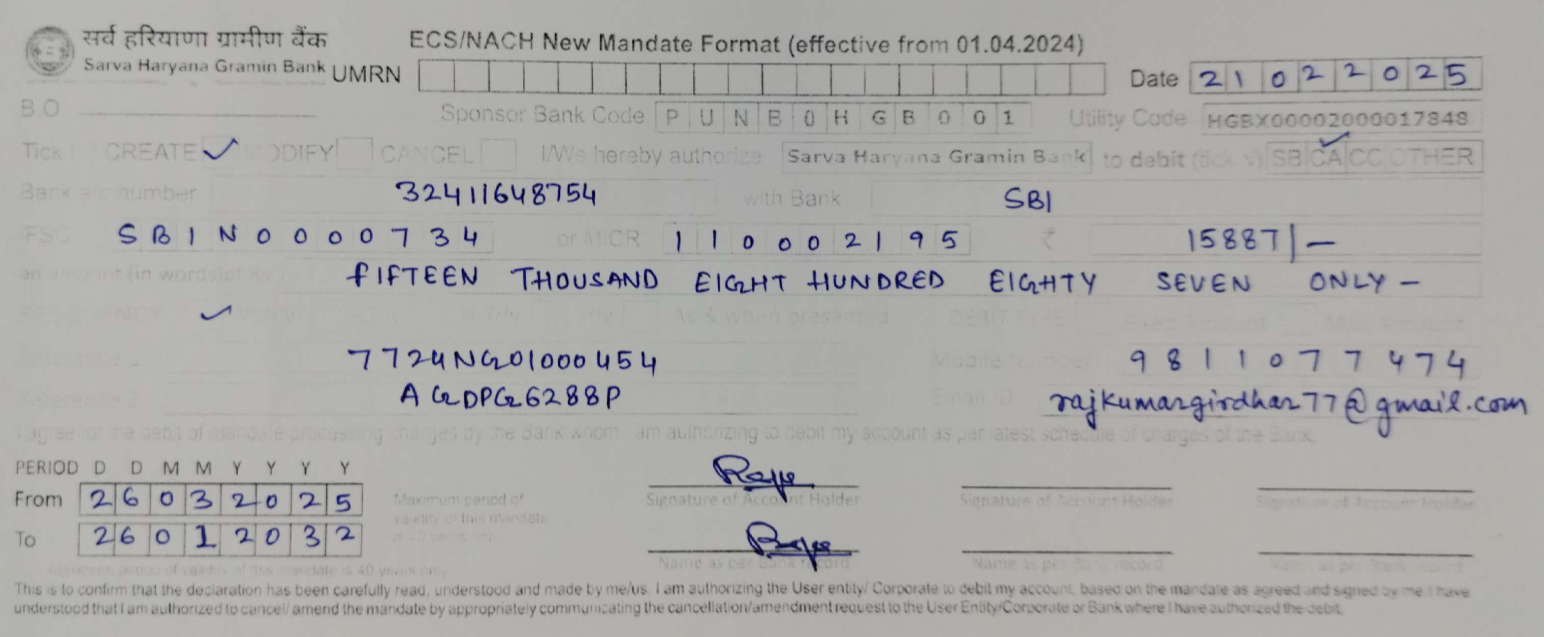 सर्व हरियाणा ग्रामीण बैंक
Sarva Haryana Gramin Bank
ECS/NACH New Mandate Format (effective from 01.04.2024)
UMRN Date 21022025
B.O Sponsor Bank Code PUNB0HGB001 Utility Code HGBX00002000017848
Tick CREATE ✓ MODIFY CANCEL I/We hereby authorize Sarva Haryana Gramin Bank to debit (tick ✓) SB CA ✓ CC OTHER
Bank a/c number 32411648754 with Bank SBI
IFSC SBIN0000734 or MICR 110002195 ₹ 15887/-
an amount (in words) of FIFTEEN THOUSAND EIGHT HUNDRED EIGHTY SEVEN ONLY -
FREQUENCY ✓ As & when presented DEBIT TYPE Fixed Amount Max Amount
Reference 7724NG01000454 Mobile Number 9811077474
Reference 2 AGDPG6288P Email ID rajkumargirdhar77@gmail.com
I agree for the debit of mandate processing charges by the Bank whom I am authorizing to debit my account as per latest schedule of charges of the Bank.
PERIOD D D M M Y Y Y Y
From 26032025
To 26012032
Maximum period of
validity of this mandate
is 40 years only
Signature of Account Holder Signature of Account Holder Signature of Account Holder
Name as per Bank record Name as per Bank record Name as per Bank record
period of validity of this mandate is 40 years only
This is to confirm that the declaration has been carefully read, understood and made by me/us. I am authorizing the User entity/ Corporate to debit my account, based on the mandate as agreed and signed by me. I have
understood that I am authorized to cancel/ amend the mandate by appropriately communicating the cancellation/amendment request to the User Entity/Corporate or Bank where I have authorized the debit.